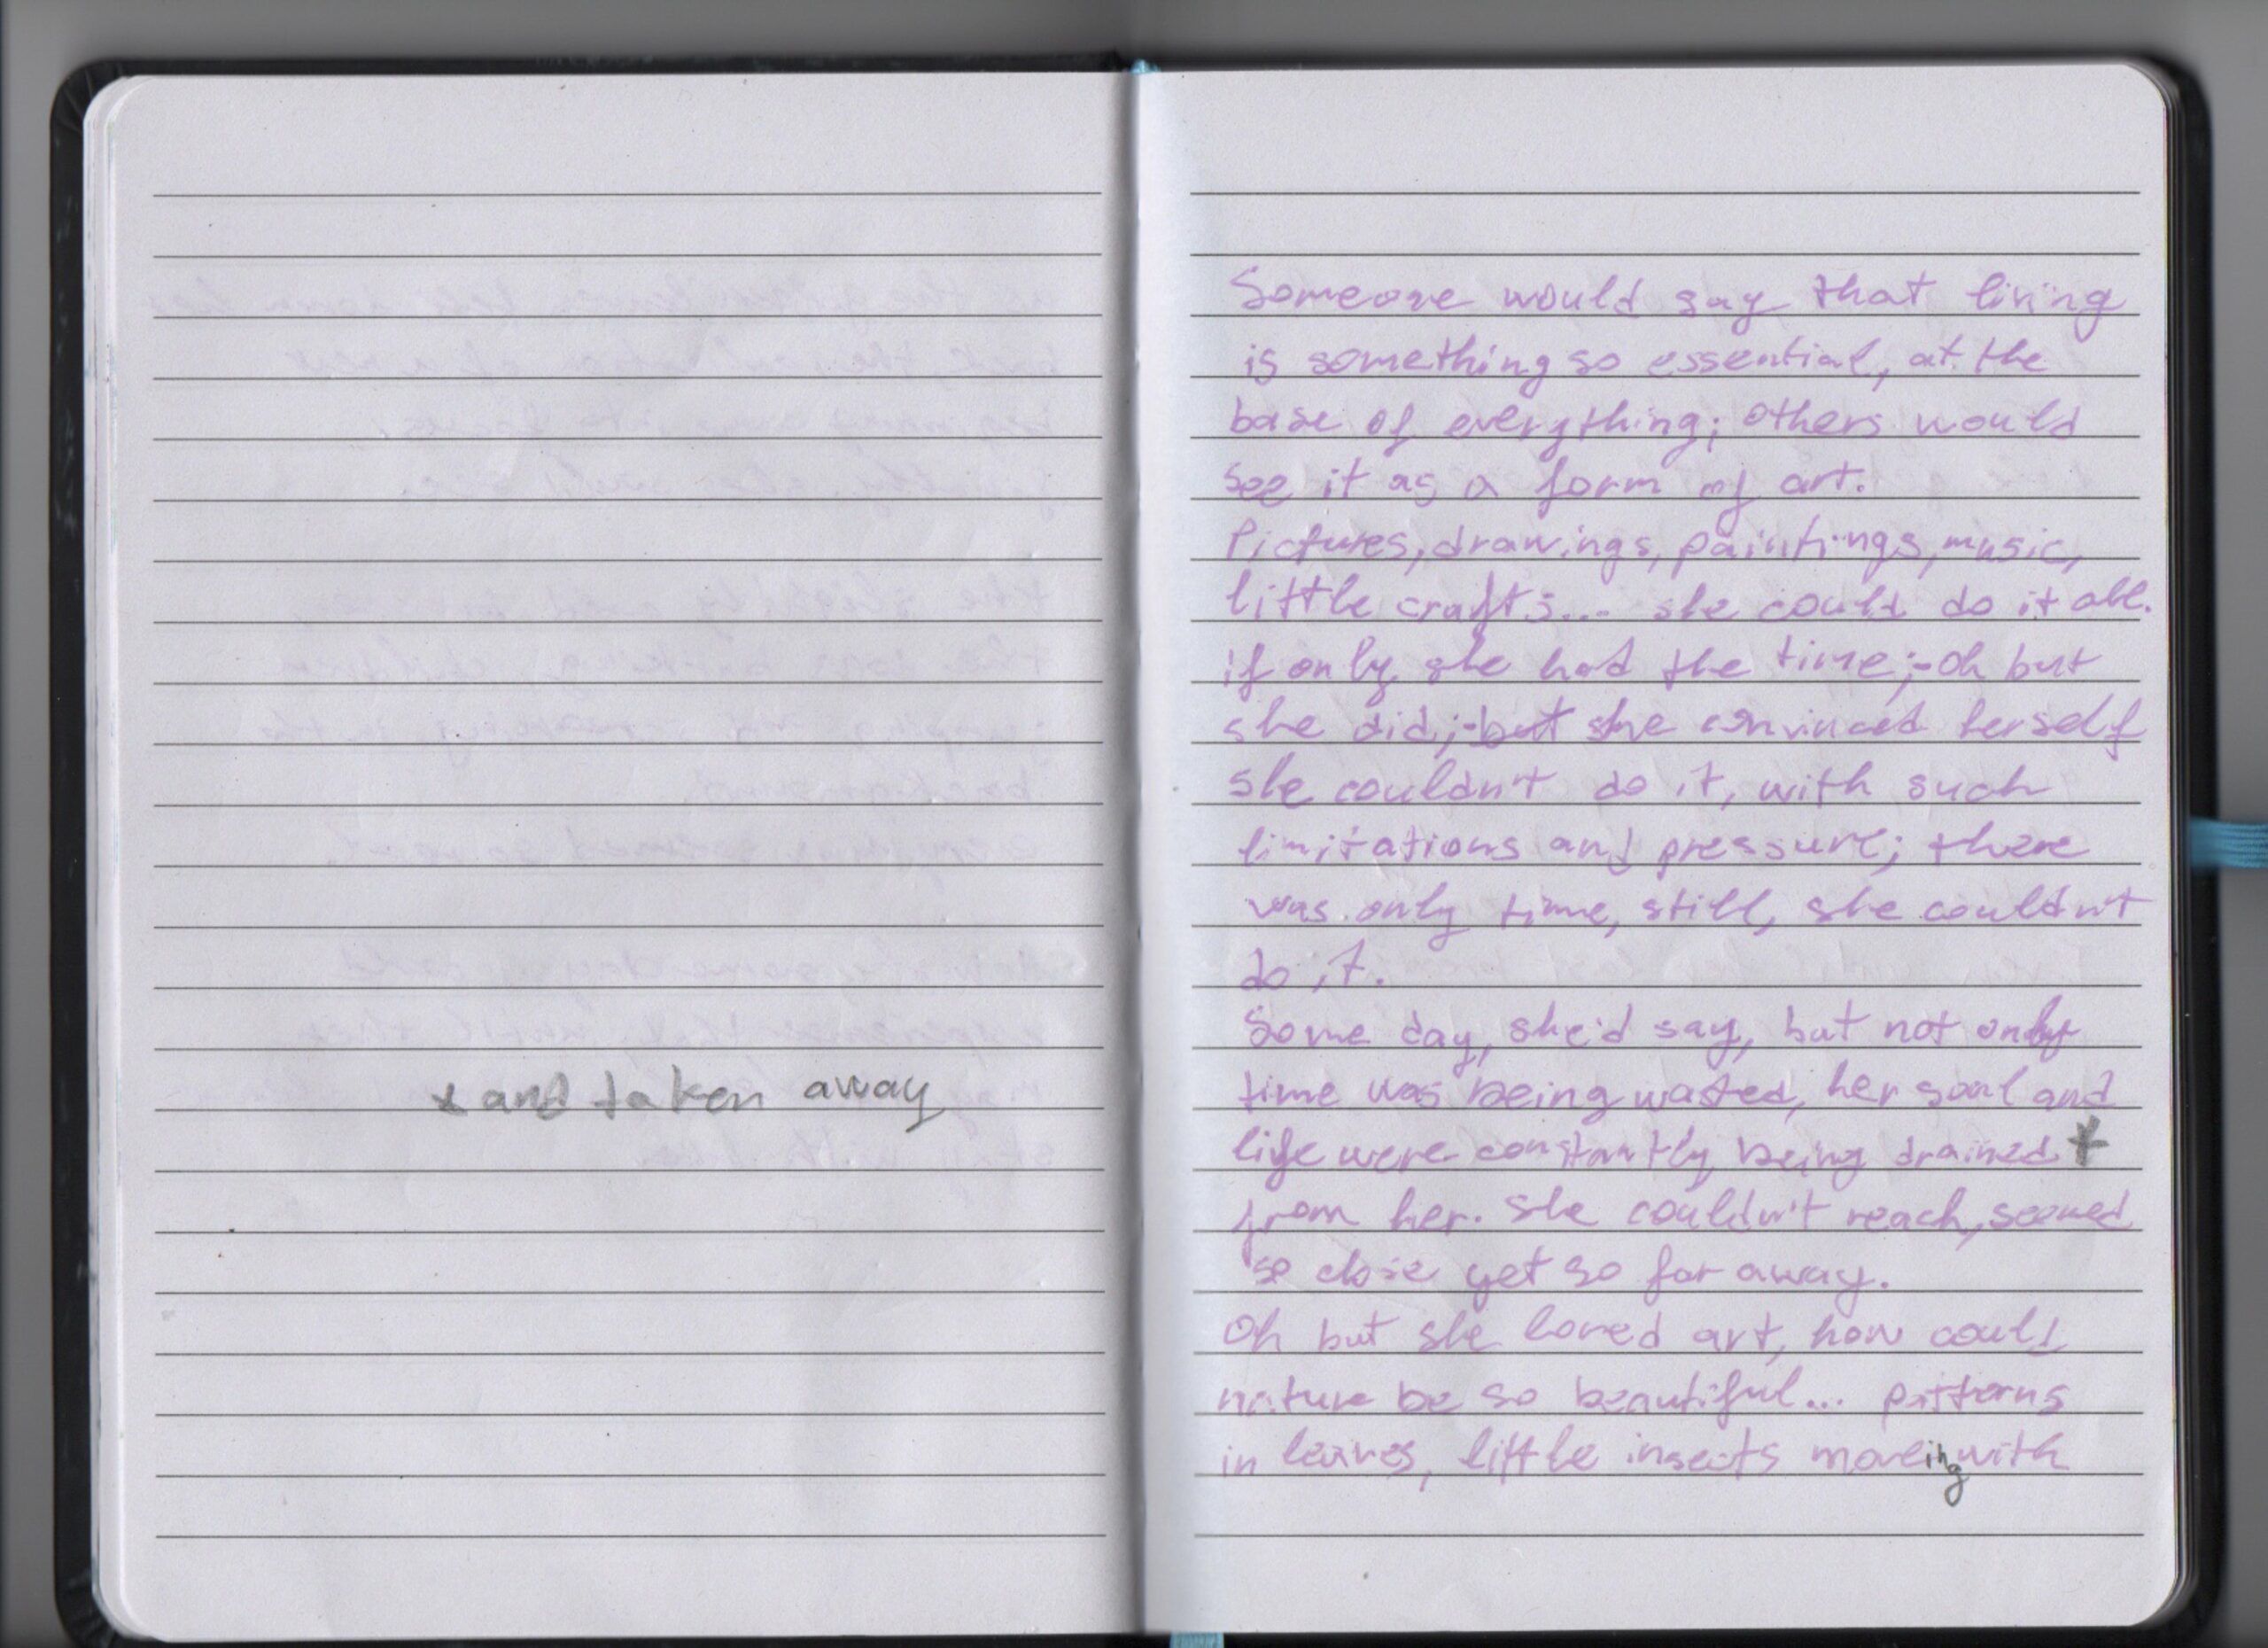 * and taken away
Someone would say that living
is something so essential, at the
base of everything; others would
see it as a form of art.
Pictures, drawings, paintings, music,
little crafts... she could do it all.
if only she had the time;-oh but
she did;-but she convinced herself
she couldn't do it, with such
limitations and pressure; there
was only time, still, she couldn't
do it.
Some day, she'd say, but not only
time was being wasted, her soul and
life were constantly being drained *
from her. She couldn't reach, seemed
so close yet so far away.
Oh but she loved art, how could
nature be so beautiful... patterns
in leaves, little insects moveing with